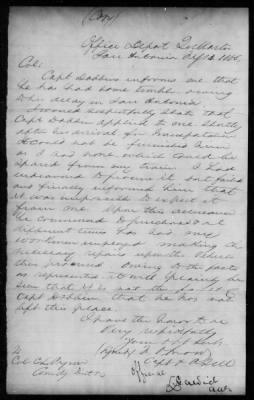 (Copy)
Office Depot Qr Master
San Antonia
Col:
Capt Dobbins informs me that
he has had some trouble owing
to his delay in San Antonia.
I would respectfully state that
Capt Dobbin applied to me shortly
after his arrival for Transportation
It could not be furnished him
as I had none which could be
spared from our trains. I had
endeavored to procure it but failed
and finally informed him that
it was impossible to expect it
from me. Upon this assurance
he commenced to purchase and at
different times has had my
workmen employed making the
necessary repairs upon the vehicles
thus procured. Owing to the facts
as represented it will plainly be
seen that it is not the fault of
Capt Dobbin that he has not
left this place.
I have the honor to be
Very respectfully
Your obt Servt
(Signed)
Capt &
To
Col
Comdg
Official